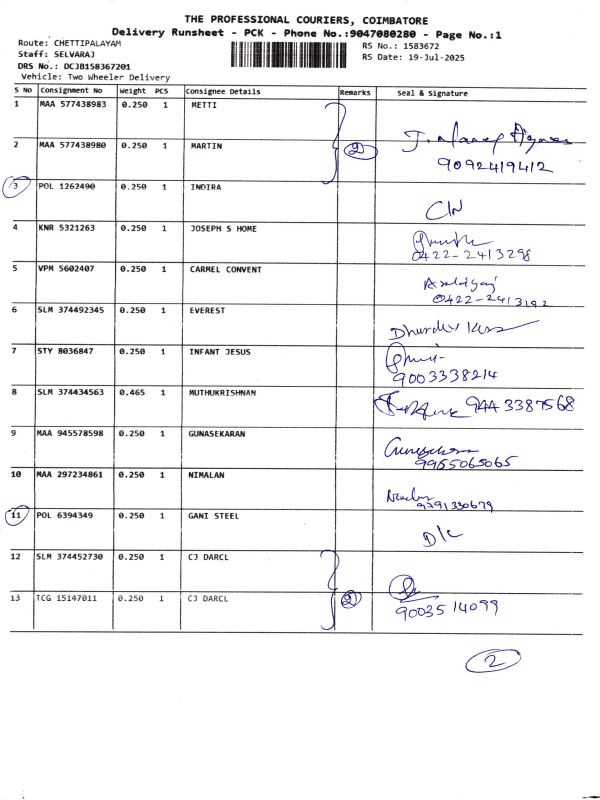 THE PROFESSIONAL COURIERS, COIMBATORE
Delivery Runsheet - PCK - Phone No.:9047080280 - Page No.:1
Route: CHETTIPALAYAM
Staff: SELVARAJ
DRS No.: DCJB158367201
Vehicle: Two Wheeler Delivery
RS No.: 1583672
RS Date: 19-Jul-2025
S No Consignment No Weight PCS Consignee Details Remarks Seal & Signature
1 MAA 577438983 0.250 1 METTI
2 MAA 577438980 0.250 1 MARTIN 2
9092419412
3 POL 1262490 0.250 1 INDIRA
4 KNR 5321263 0.250 1 JOSEPH S HOME
0422-2413298
5 VPM 5602407 0.250 1 CARMEL CONVENT
0422-2413192
6 SLM 374492345 0.250 1 EVEREST
7 STY 8036847 0.250 1 INFANT JESUS
9003338214
8 SLM 374434563 0.465 1 MUTHUKRISHNAN 944 3387568
9 MAA 945578598 0.250 1 GUNASEKARAN
9955065065
10 MAA 297234861 0.250 1 NIMALAN
9791330679
11 POL 6394349 0.250 1 GANI STEEL D/C
12 SLM 374452730 0.250 1 CJ DARCL
13 TCG 15147011 0.250 1 CJ DARCL 2
9003514099
2